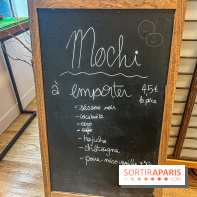 Mochi
à emporter 4,5€
la pièce
- sésame noir
- cacahuète
- coco
- café
- matcha
- châtaigne
- poire miso vanille
SORTIRAPARIS